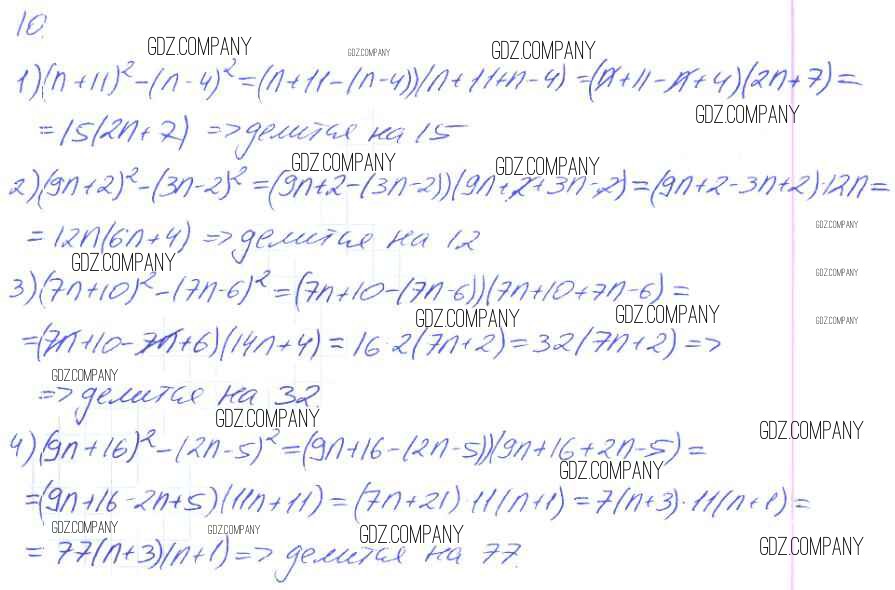 10.
GDZ.COMPANY GDZ.COMPANY GDZ.COMPANY
1) (n+11)² - (n-4)² = (n+11-(n-4))(n+11+n-4) = (n+11-n+4)(2n+7) =
GDZ.COMPANY
= 15(2n+7) => делится на 15
GDZ.COMPANY GDZ.COMPANY
2) (9n+2)² - (3n-2)² = (9n+2-(3n-2))(9n+2+3n-2) = (9n+2-3n+2)·12n =
GDZ.COMPANY
= 12n(6n+4) => делится на 12
GDZ.COMPANY GDZ.COMPANY
3) (7n+10)² - (7n-6)² = (7n+10-(7n-6))(7n+10+7n-6) =
GDZ.COMPANY GDZ.COMPANY GDZ.COMPANY
= (7n+10-7n+6)(14n+4) = 16·2(7n+2) = 32(7n+2) =>
GDZ.COMPANY
=> делится на 32.
GDZ.COMPANY GDZ.COMPANY
4) (9n+16)² - (2n-5)² = (9n+16-(2n-5))(9n+16+2n-5) =
GDZ.COMPANY
= (9n+16-2n+5)(11n+11) = (7n+21)·11(n+1) = 7(n+3)·11(n+1) =
GDZ.COMPANY GDZ.COMPANY GDZ.COMPANY GDZ.COMPANY
= 77(n+3)(n+1) => делится на 77.